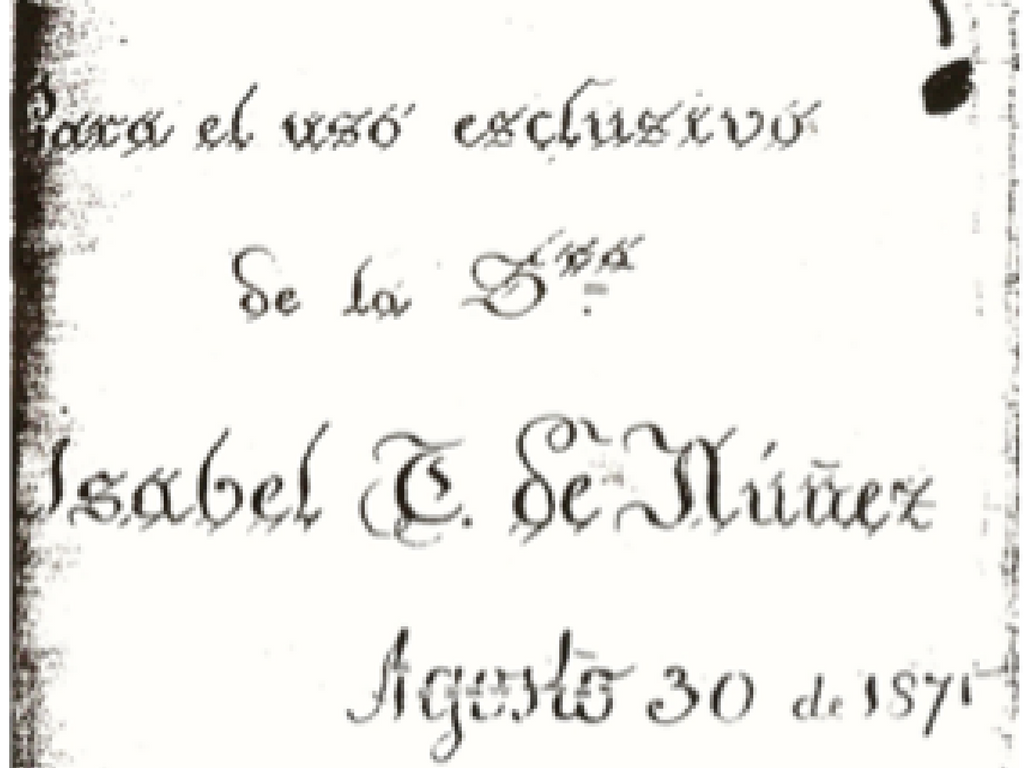 Para el uso esclusivo
de la Sra.
Isabel T. de Núñez
Agosto 30 de